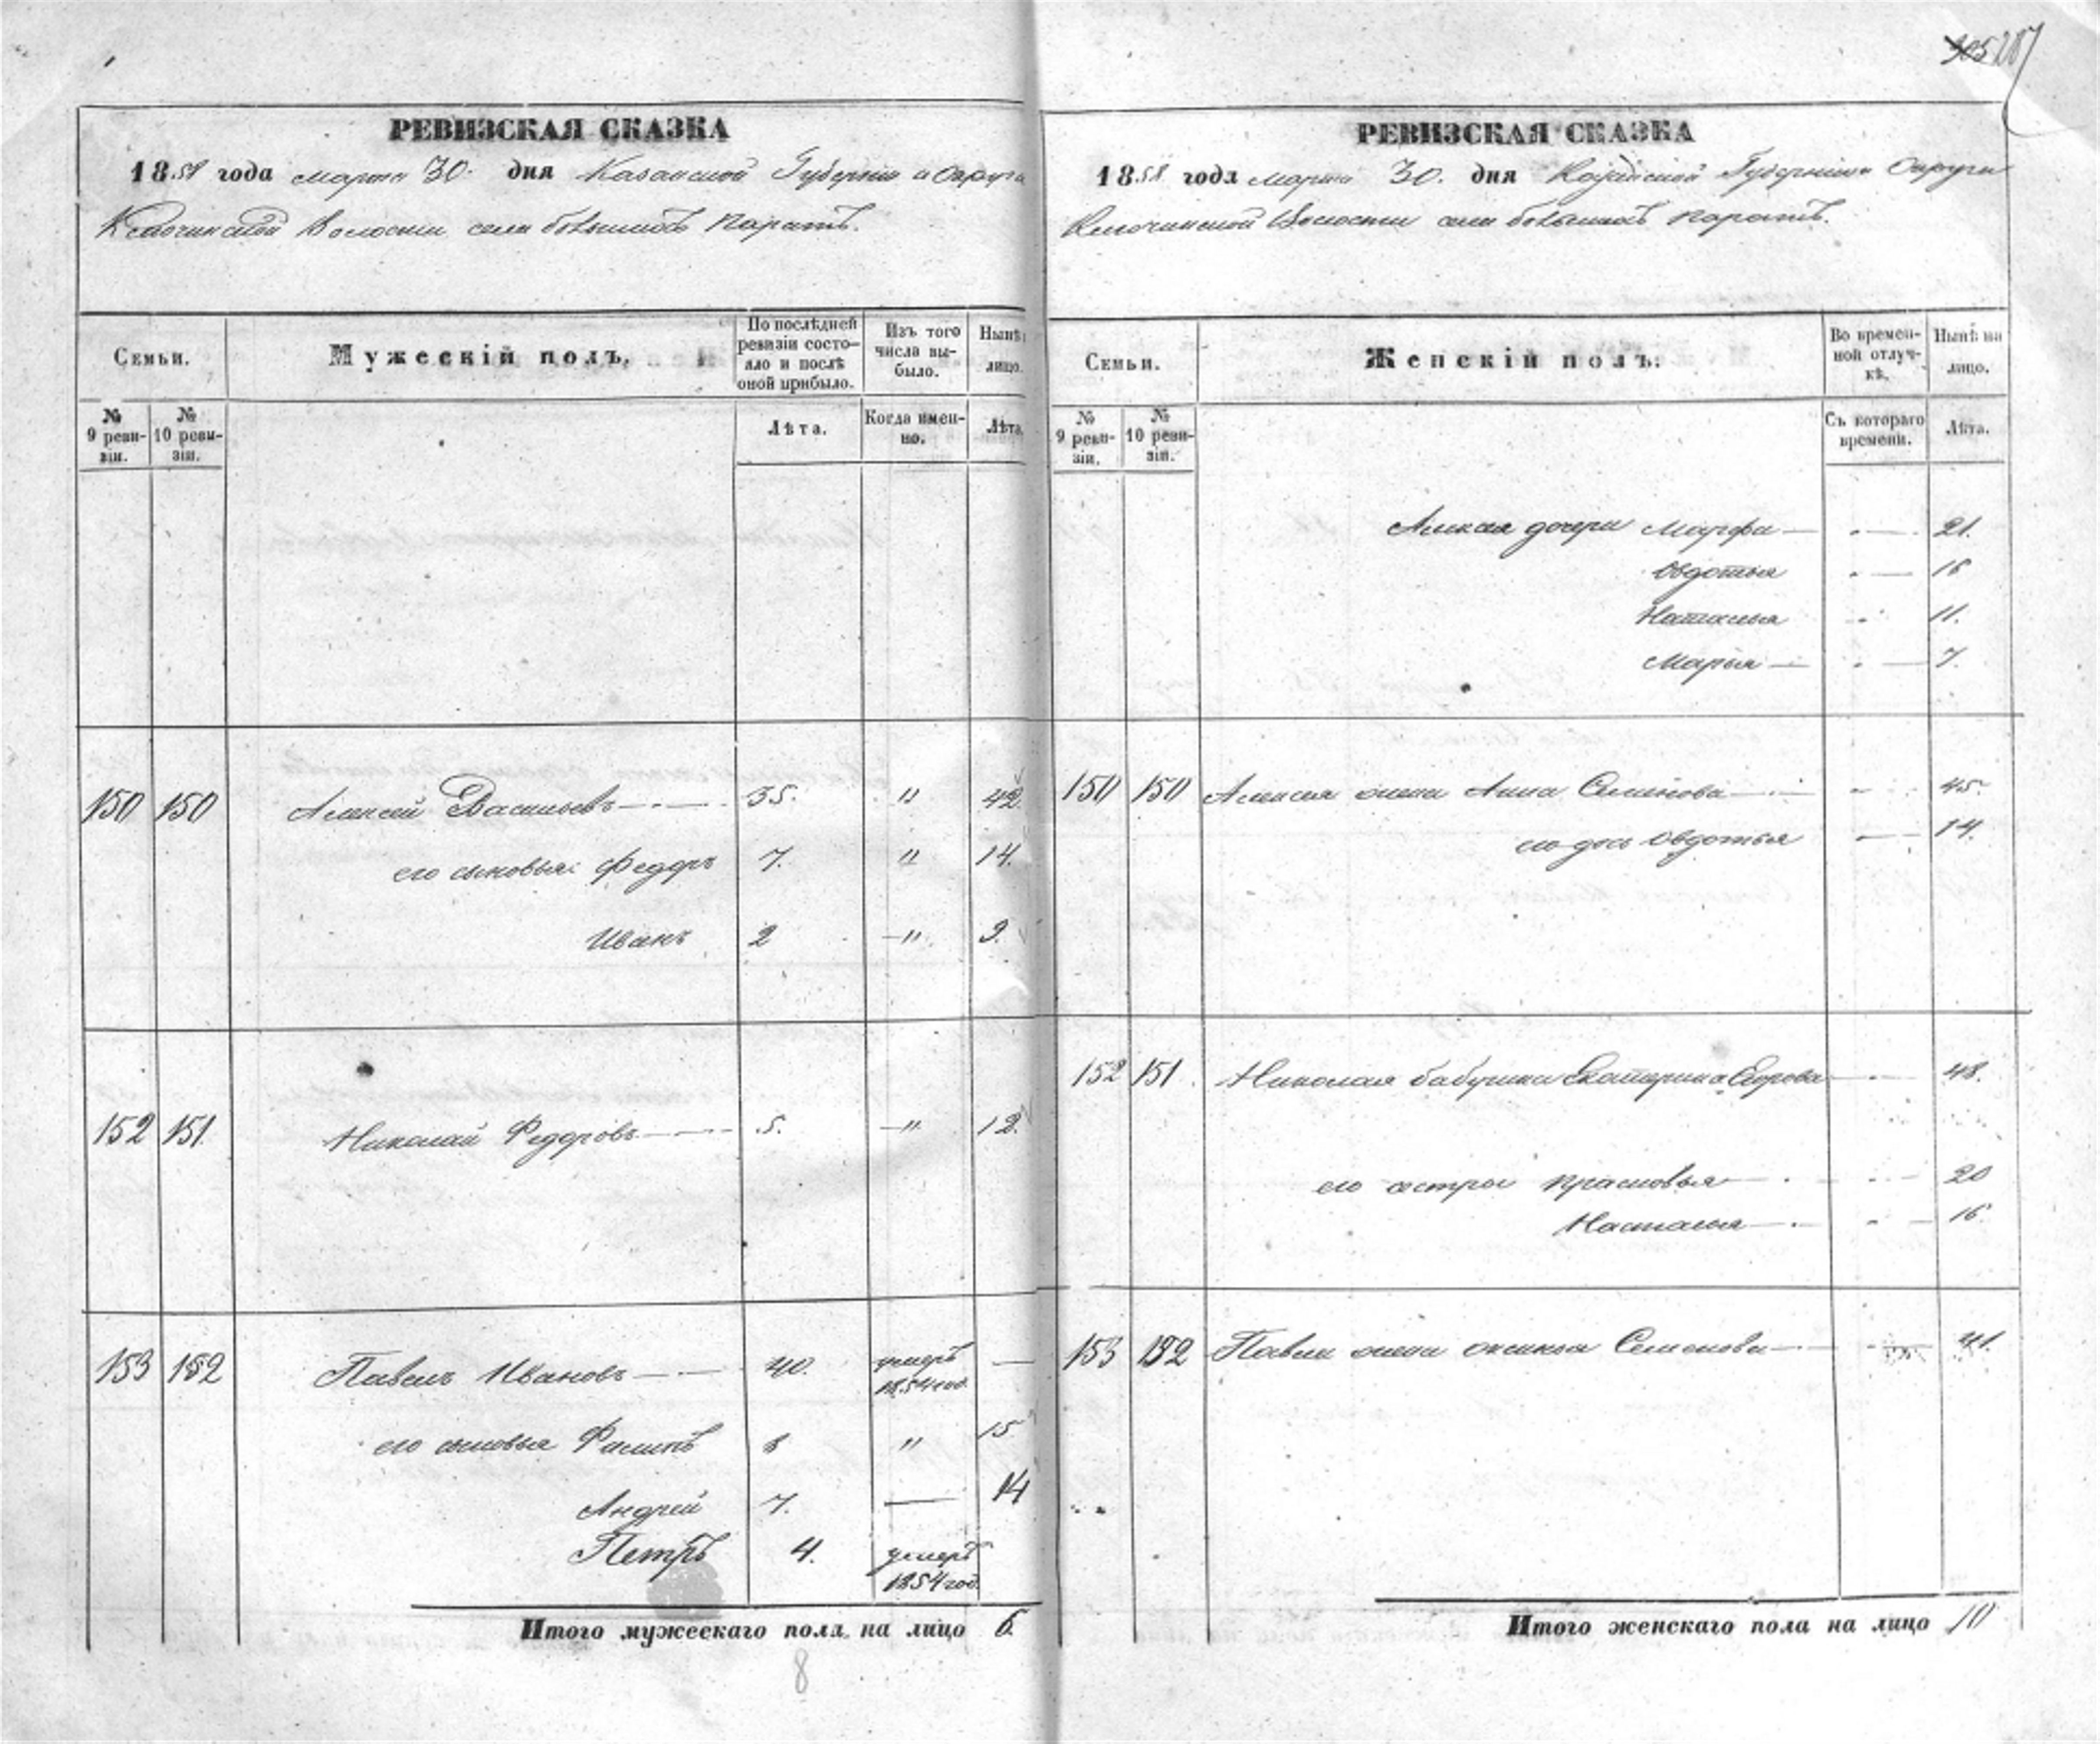 287
РЕВИЗСКАЯ СКАЗКА
1858 года марта 30. дня Казанской Губерніи и Округа
Волости села большихъ Паратъ.
Семьи.
Мужескій полъ.
По послѣдней ревизіи состояло и послѣ оной прибыло.
Изъ того числа выбыло.
Нынѣ лицо.
№ 9 ревизіи.
№ 10 ревизіи.
Лѣта.
Когда именно.
Лѣта.
150 150 Алексей Васильевъ 35. " 42.
его сыновья: Федоръ 7. " 14.
Иванъ 2 " 9.
152 151. Николай Федоровъ 5. " 12.
153 152 Павелъ Ивановъ 40. умеръ 1854 год. —
его сыновья 8 " 15
Андрей 7. — 14
Петръ 4. умеръ 1854 год.
Итого мужескаго пола на лицо 6.
8
РЕВИЗСКАЯ СКАЗКА
1858 года марта 30. дня Казанской Губерніи и Округи
Волости села большихъ Паратъ.
Семьи.
Женскій полъ.
Во временной отлучкѣ.
Нынѣ на лицо.
№ 9 ревизіи.
№ 10 ревизіи.
Съ котораго времени.
Лѣта.
Алексея дочери Марфа — 21.
Овдотья — 16
Наталья 11.
Марья — 7.
150 150 Алексея жена Анна Семенова 45.
его дочь Овдотья — 14.
152 151. Николая бабушка Екатерина Егорова 48.
его сестры Прасковья 20
Настасья 16.
153 152 Павла жена Оксинья Семенова 41.
Итого женскаго пола на лицо 10